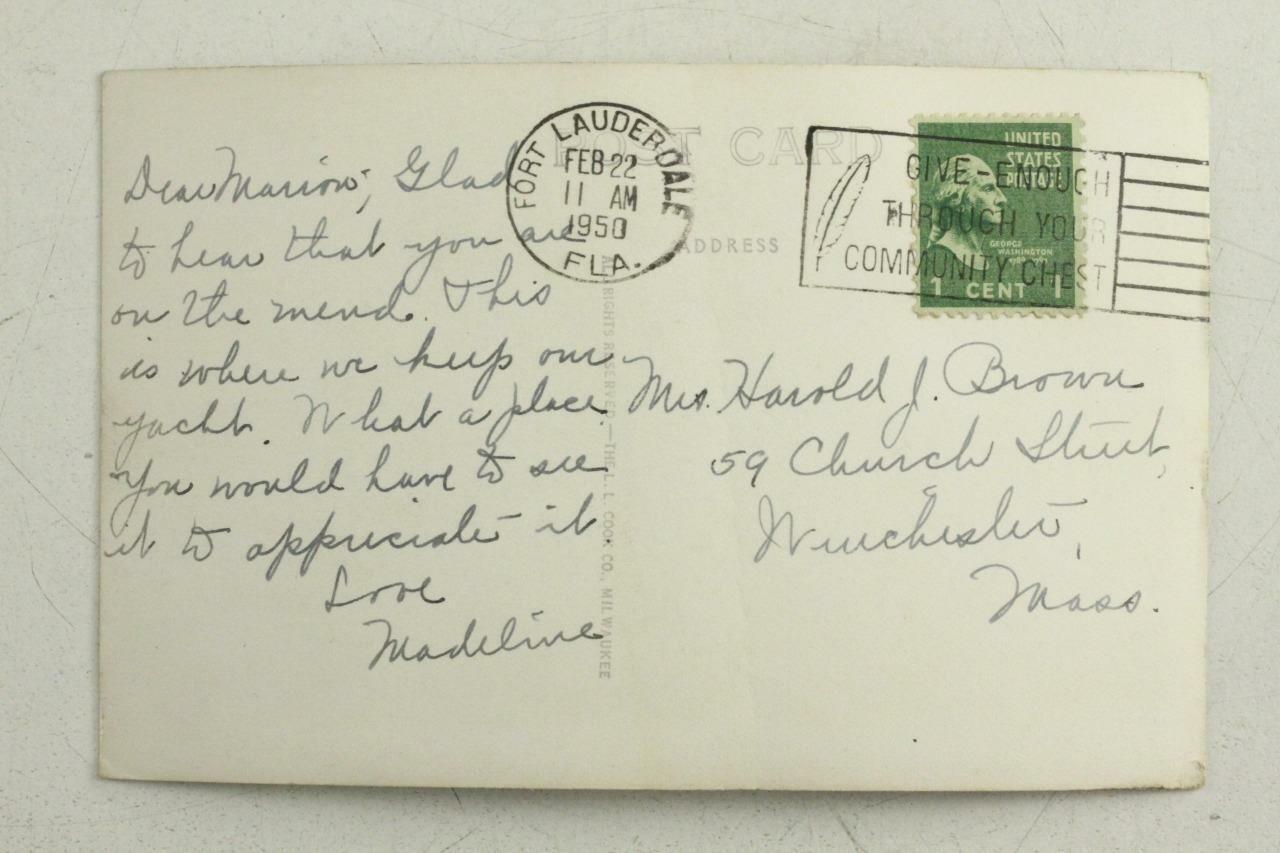 Dear Marion, Glad
to hear that you are
on the mend. This
is where we keep our
yacht. What a place.
You would have to see
it to appreciate it.
Love
Madeline
POST CARD
ADDRESS
FORT LAUDERDALE
FEB 22
11 AM
1950
FLA.
GIVE-ENOUGH
THROUGH YOUR
COMMUNITY CHEST
UNITED
STATES
POSTAGE
GEORGE
WASHINGTON
1 CENT 1
Mrs. Harold J. Brown
59 Church Street,
Winchester,
Mass.
ALL RIGHTS RESERVED—THE L. L. COOK CO., MILWAUKEE